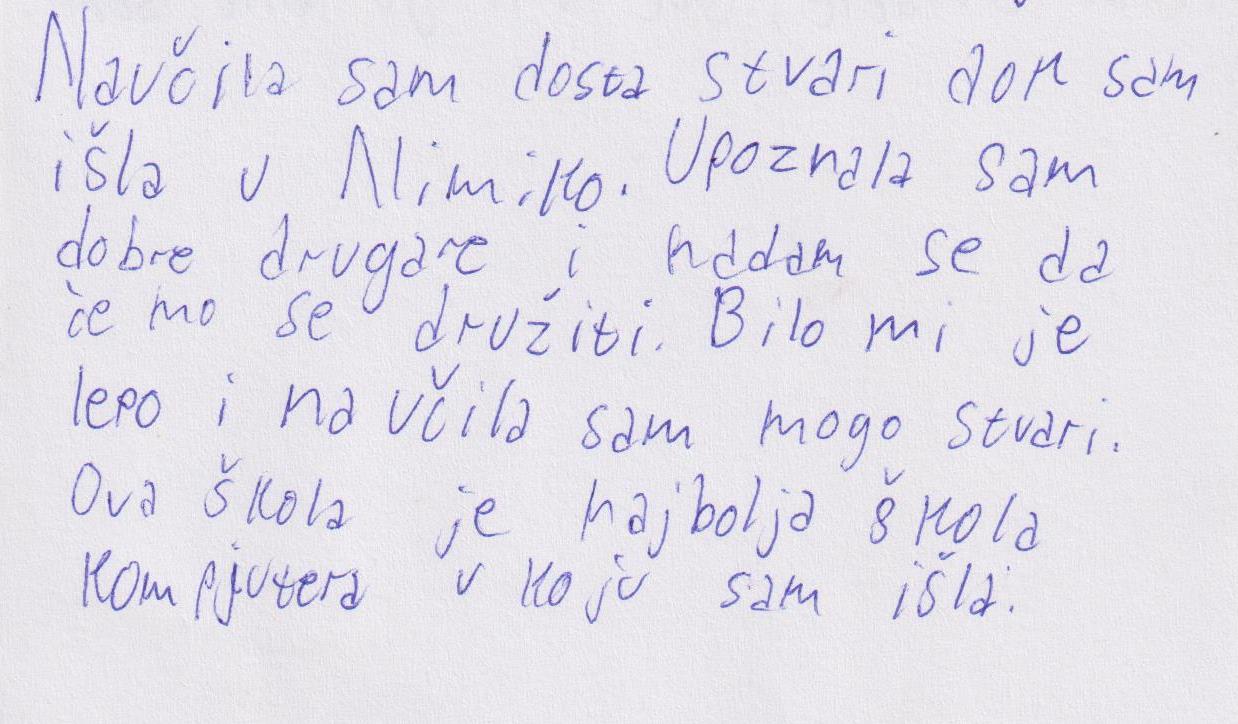 Naučila sam dosta stvari dok sam
išla u Alimiko. Upoznala sam
dobre drugare i nadam se da
će mo se družiti. Bilo mi je
lepo i naučila sam mogo stvari.
Ova škola je najbolja škola
kompjutera u koju sam išla.